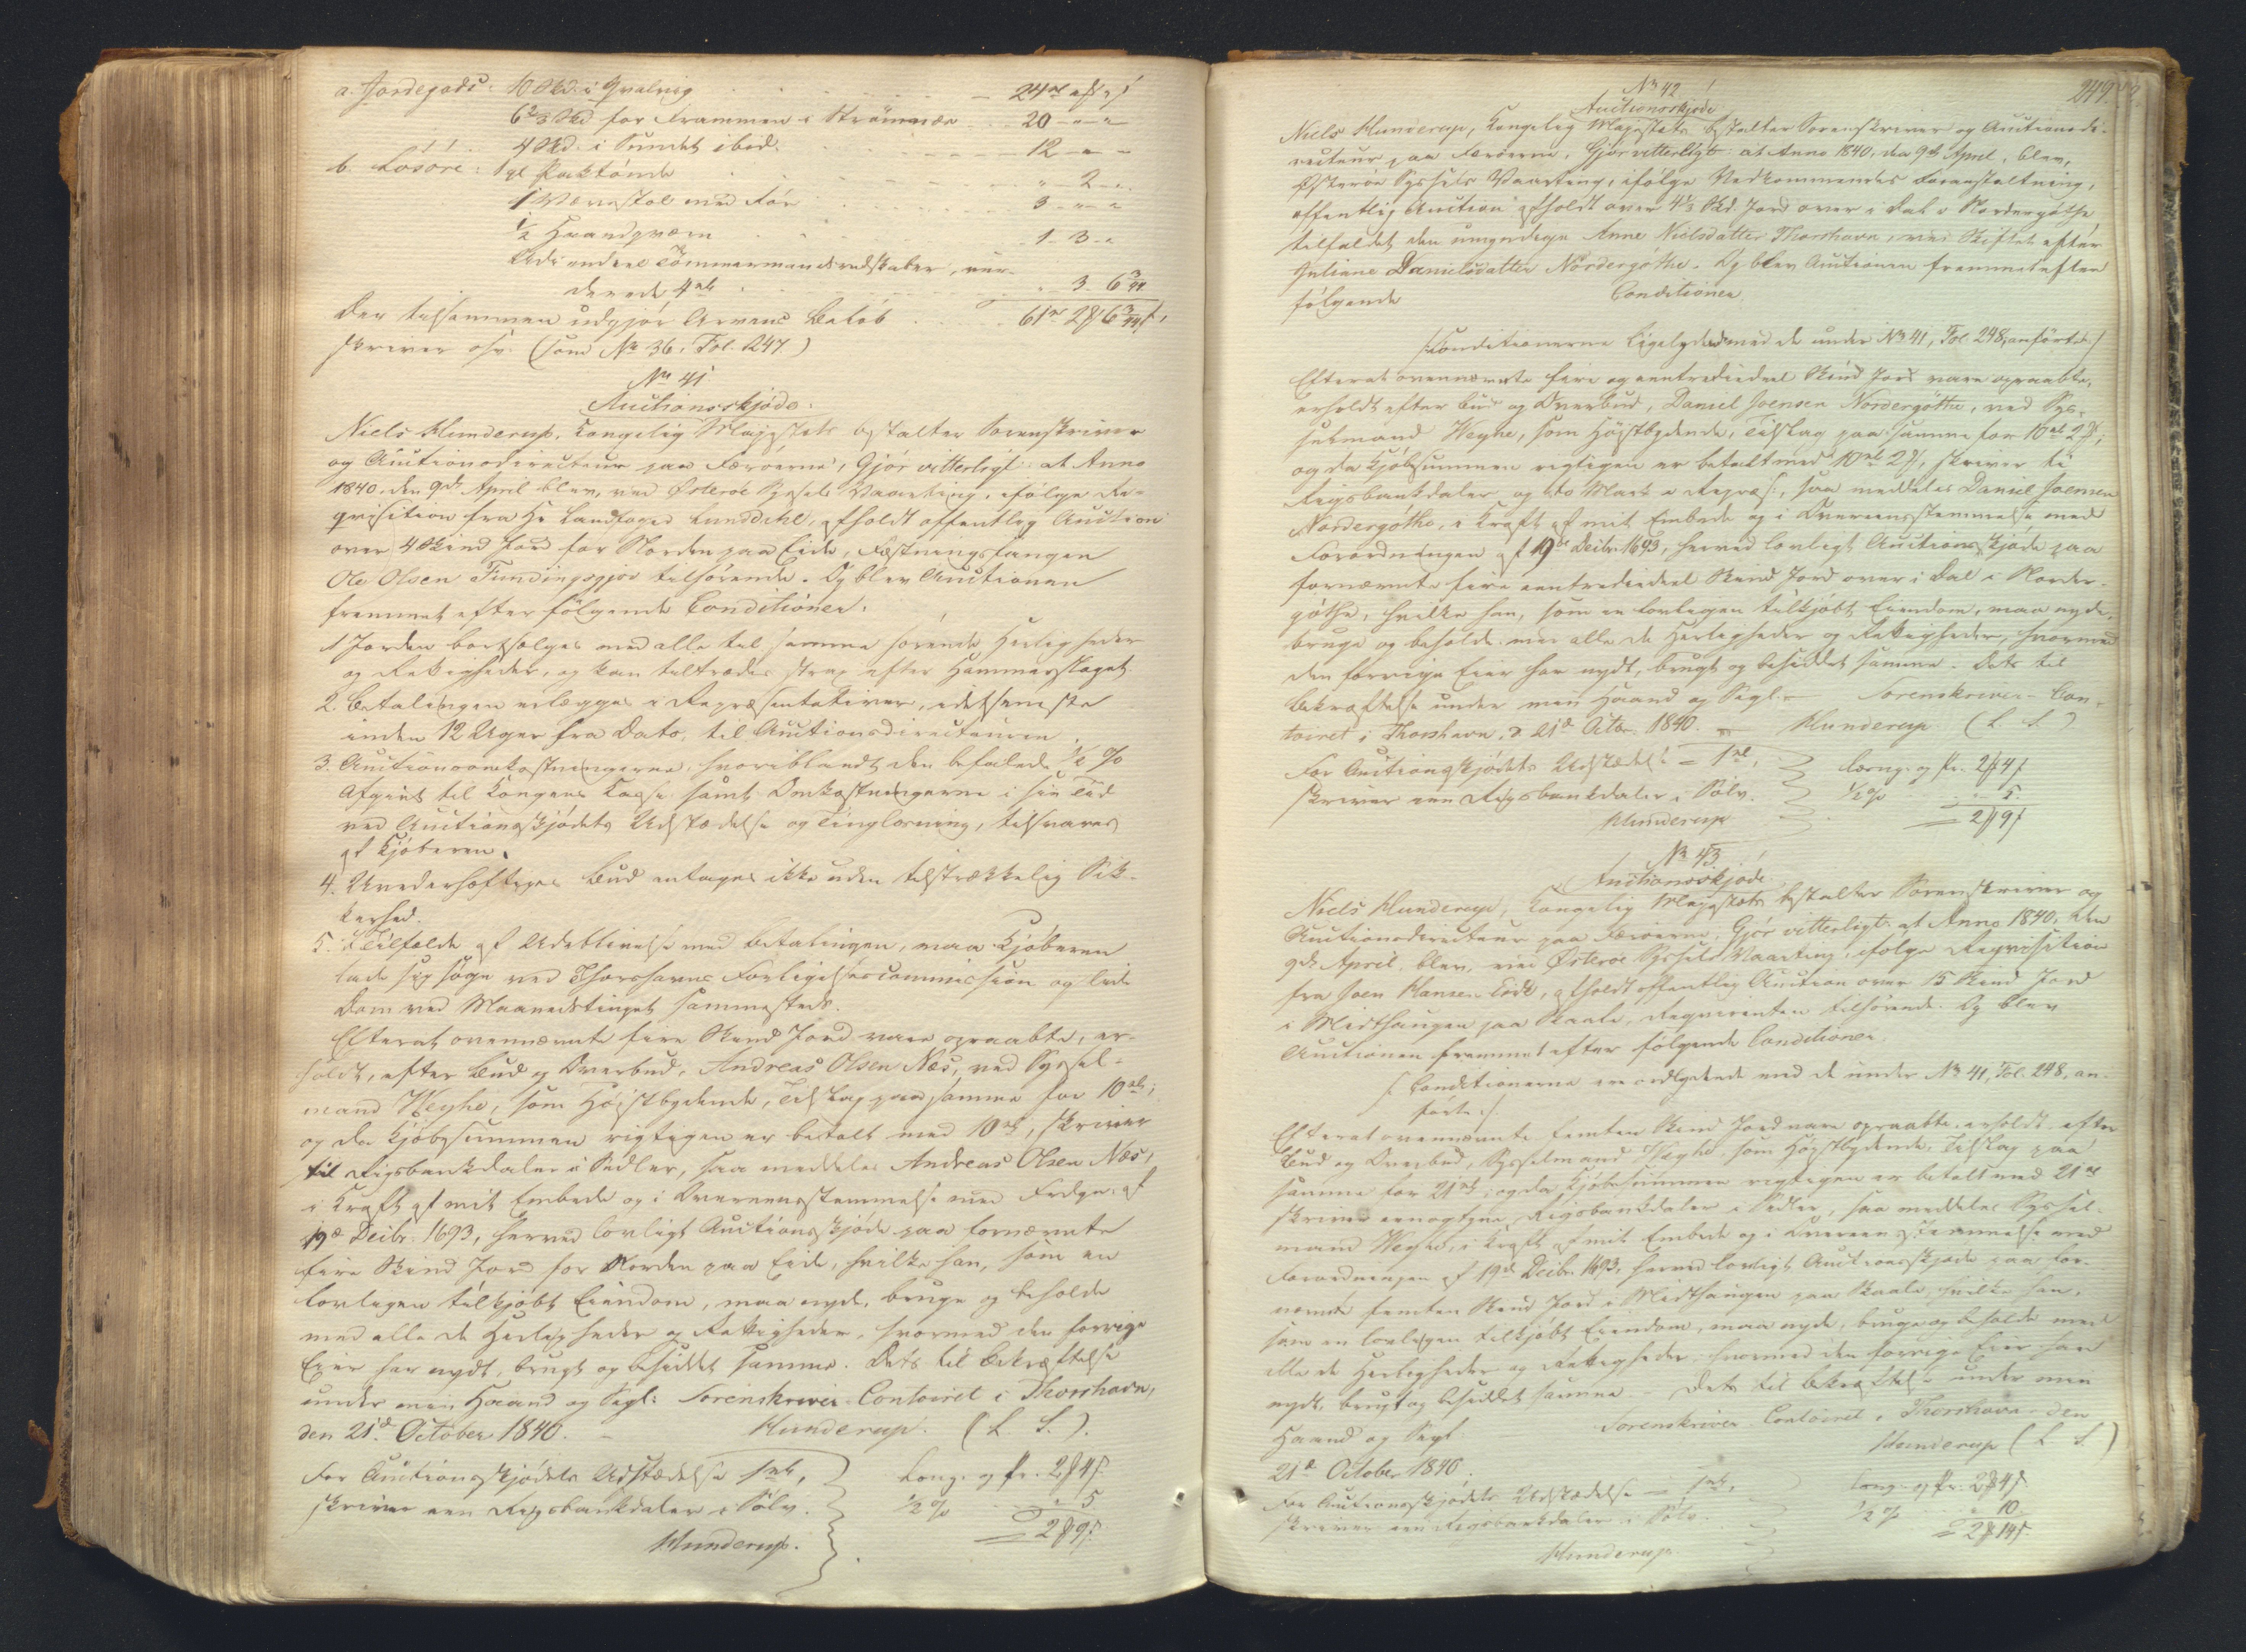 a. Jordegods: 10 Skd. i Qvalvig 24 rd
6 2/3 Skd for Frammen i Strömnæs 20 - " - "
4 Skd. i Sundet ibid. 12 - " - "
b. Lösöre: 1 gl. Paktönde " - 2 - "
1 Vævestol med Rör 3 - " - "
1/2 Haandqværn 1 - 3 - "
Tömmermandsredskaber, vur-
derede 4 rd " - 3 - 6
Der tilsammen udgjör Arvens Belöb 61 rd 2 6
skriver osv. (som No 36, Fol. 247.)
No 41
Auctionsskjöde.
Niels Hunderup, Kongelig Majestæts bestalter Sorenskriver
og Auctionsdirecteur paa Færöerne, Gjör vitterligt: at Anno
1840, den 9de April blev, ved Österöe Syssels Vaarting, ifölge Re-
qvisition fra Hr Landfoged Lunddahl, afholdt offentlig Auction
over 4 Skind Jord for Norden paa Eide, Fæstningsfangen
Ole Olsen Fundingsgjov tilhörende. Og blev Auctionen
fremmet efter fölgende Conditioner.
1 Jorden bortsælges med alle til samme hörende Herligheder
og Rettigheder, og kan tiltrædes strax efter Hammerslaget.
2. Betalingen erlægges i Repræsentativer, idetseneste
inden 12 Uger fra Dato, til Auctionsdirecteuren.
3. Auctionsomkostningerne, hvoriblandt den befalede 1/2 %
Afgivt til Kongens Kasse samt Omkostningerne i sin Tid
ved Auctionsskjödets Udstædelse og Tinglæsning, tilsvares
af Kjöberen.
4. Uvederhæftiges Bud antages ikke uden tilstrækkelig Sik-
kerhed.
5. I Tilfælde af Udeblivelse med Betalingen, maa Kjöberen
lade sig söge ved Thorshavns Forligelsescommission og lide
Dom ved Maanedstinget sammesteds.
Efterat ovennævnte fire Skind Jord vare opraabte, er-
holdt, efter Bud og Overbud, Andreas Olsen Næs, ved Syssel-
mand Weyhe, som Höistbydende, Tilslag paa samme for 10 rd;
og da Kjöbesummen rigtigen er betalt med 10 rd, skriver
til Rigsbankdaler i Sedler, saa meddeles Andreas Olsen Næs,
i Kraft af mit Embede og i Overeensstemmelse med Frdgn. af
19de Decbr. 1693, herved lovligt Auctionsskjöde paa fornævnte
fire Skind Jord for Norden paa Eide, hvilke han, som en
lovligen tilkjöbt Eiendom, maa nyde, bruge og beholde
med alle de Herligheder og Rettigheder, hvormed den forrige
Eier har nydt, brugt og besiddet samme. Dets til Bekræftelse
under min Haand og Segl. Sorenskriver-Contoiret i Thorshavn,
den 21de October 1840. Hunderup. (L. S.)
For Auctionsskjödets Udstædelse 1 rd, Læsng. og Pr. 2 4
skriver een Rigsbankdaler i Sölv. 1/2 % " 5
Hunderup. 2 9
249.
No 42
Auctionsskjöde
Niels Hunderup, Kongelig Majestæts bestalter Sorenskriver og Auctionsdi-
recteur paa Færöerne, Gjör vitterligt: at Anno 1840, den 9de April, blev,
Österöe Syssels Vaarting, ifölge Vedkommendes Foranstaltning,
offentlig Auction afholdt over 4 1/3 Skd. Jord over i Dal i Nordergöthe,
tilfaldet den umyndige Anne Nielsdatter Thorshavn, ved Skiftet efter
Juliane Danielsdatter Nordergöthe. Og blev Auctionen fremmet efter
fölgende Conditioner.
/: Conditionerne ligelydende med de under No 41, Fol. 248, anförte :/
Efterat ovennævnte fire og eentrediedeel Skind Jord vare opraabte,
erholdt efter Bud og Overbud, Daniel Joensen Nordergöthe, ved Sys-
selmand Weyhe, som Höistbydende, Tilslag paa samme for 10 rd 2;
og da Kjöbesummen rigtigen er betalt med 10 rd 2, skriver ti
Rigsbankdaler og to Mark i Repræs:, saa meddeles Daniel Joensen
Nordergöthe, i Kraft af mit Embede og i Overeensstemmelse med
Forordningen af 19de Decbr. 1693, herved lovligt Auctionsskjöde paa
fornævnte fire eentrediedeel Skind Jord over i Dal i Norder-
göthe, hvilke han, som en lovligen tilkjöbt Eiendom, maa nyde,
bruge og beholde med alle de Herligheder og Rettigheder, hvormed
den forrige Eier har nydt, brugt og besiddet samme. Dets til
Bekræftelse under min Haand og Segl. Sorenskriver-Con-
toiret i Thorshavn, d 21de Octbr. 1840. Hunderup (L. S.)
For Auctionsskjödets Udstædelse 1 rd, Læsng. og Pr. 2 4
skriver een Rigsbankdaler i Sölv. 1/2 % 5
Hunderup 2 9
No 43.
Auctionsskjöde
Niels Hunderup, Kongelig Majestæts bestalter Sorenskriver og
Auctionsdirecteur paa Færöerne, Gjör vitterligt: at Anno 1840, den
9de April, blev, ved Österöe Syssels Vaarting, ifölge Reqvisition
fra Joen Hansen Eide, afholdt offentlig Auction over 15 Skind Jord
i Midthaugen paa Skaale, Reqvirenten tilhörende. Og blev
Auctionen fremmet efter fölgende Conditioner.
/: Conditionerne ere ordlydende med de under No 41, Fol. 248, an-
förte :/.
Efterat ovennævnte femten Skind Jord vare opraabte, erholdt, efter
Bud og Overbud, Sysselmand Weyhe, som Höistbydende, Tilslag paa
samme for 21 rd; og da Kjöbesummen rigtigen er betalt med 21 rd
skriver eenogtyve Rigsbankdaler i Sedler, saa meddeles Syssel-
mand Weyhe, i Kraft af mit Embede og i Overeensstemmelse med
Forordningen af 19de Decbr. 1693, herved lovligt Auctionsskjöde paa for-
nævnte femten Skind Jord i Midthaugen paa Skaale, hvilke han,
som en lovligen tilkjöbt Eiendom, maa nyde, bruge og beholde med
alle de Herligheder og Rettigheder, hvormed den forrige Eier har
nydt, brugt og besiddet samme. Dets til Bekræftelse under min
Haand og Segl. Sorenskriver-Contoiret i Thorshavn den
21de October 1840. Hunderup (L. S.)
For Auctionsskjödets Udstædelse 1 rd, Læsng. og Pr. 2 4
skriver een Rigsbankdaler i Sölv. 1/2 % 10
Hunderup. 2 14